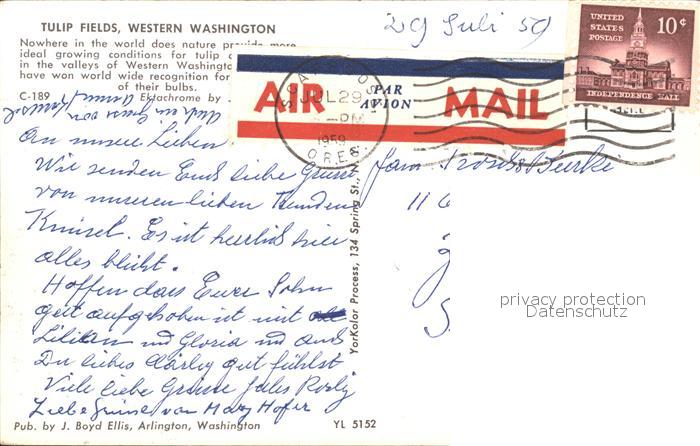 TULIP FIELDS, WESTERN WASHINGTON
Nowhere in the world does nature provide more
ideal growing conditions for tulip
in the valleys of Western Washington
have won world wide recognition for
of their bulbs.
C-189 Ektachrome by J.
29 Juli 59
UNITED
STATES
POSTAGE
10¢
INDEPENDENCE HALL
AIR MAIL
PAR
AVION
JUL 29
PM
1959
OREG.
An unsere Lieben
Wir senden Euch liebe Grüsse
von unseren lieben Freunden
Knusel. Es ist herrlich hier
alles blüht.
Hoffen dass Euer Sohn
gut aufgehoben ist mit
Lilian und Gloria und auch
Du liebes Därly gut fühlst
Viele liebe Grüsse Jules Rosly
Liebe Grüsse von Mary Hofer
Fam.
116
g
S
YorKolor Process, 134 Spring St., N.
privacy protection
Datenschutz
Pub. by J. Boyd Ellis, Arlington, Washington YL 5152